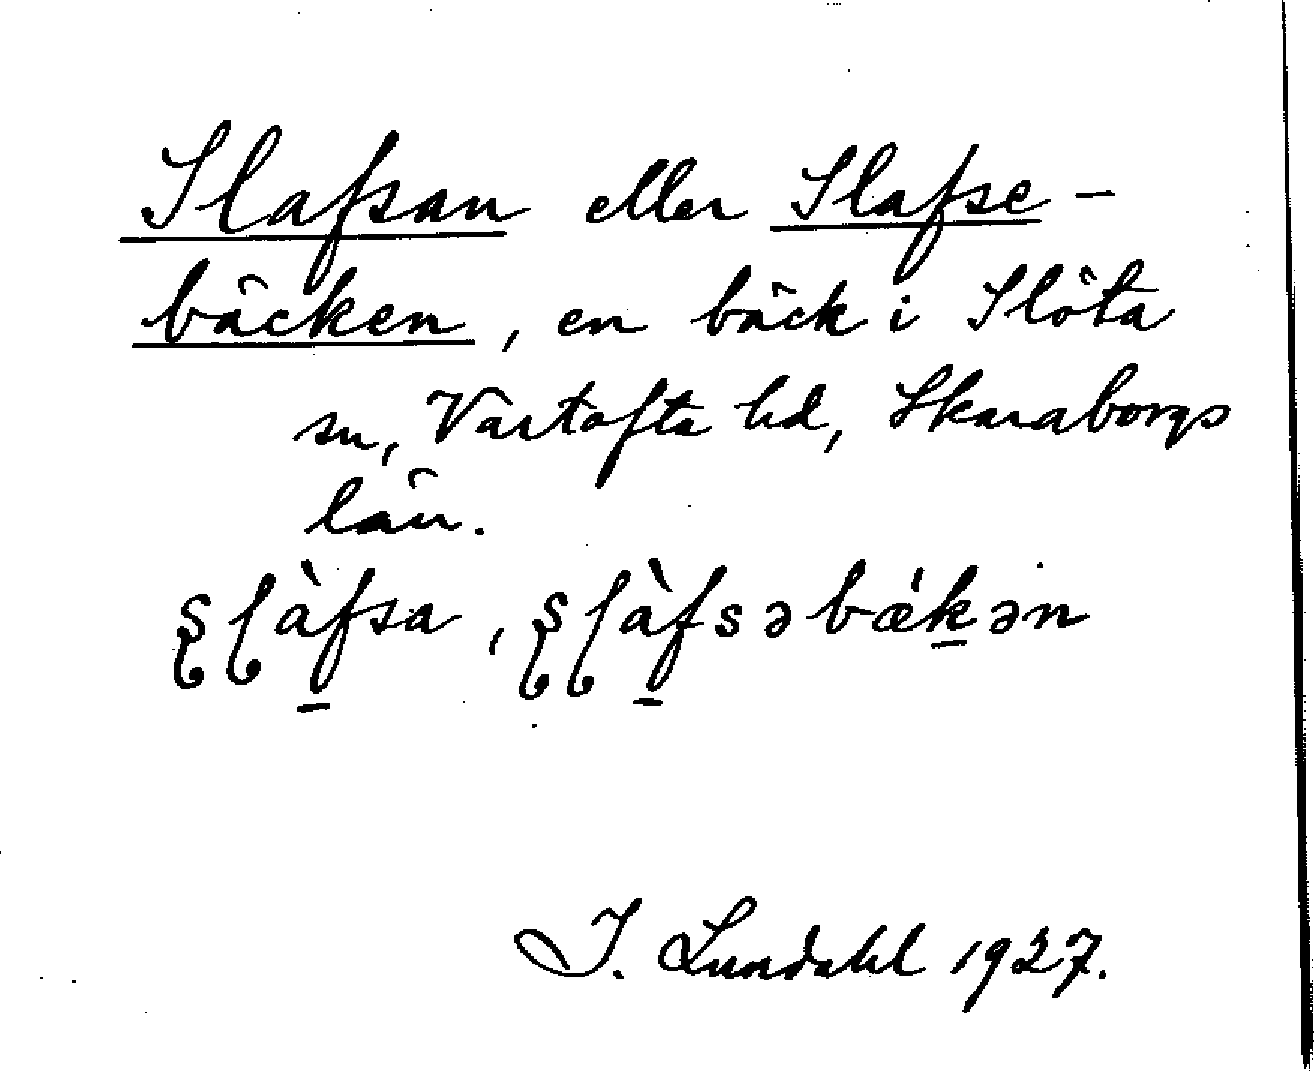 Slafsan eller Slafse-
bäcken, en bäck i Slöta
sn, Vartofta hd, Skaraborgs
län.
ʂɭàf̠sa, ʂɭàf̠səbǽk̠ən
I. Lundahl 1927.